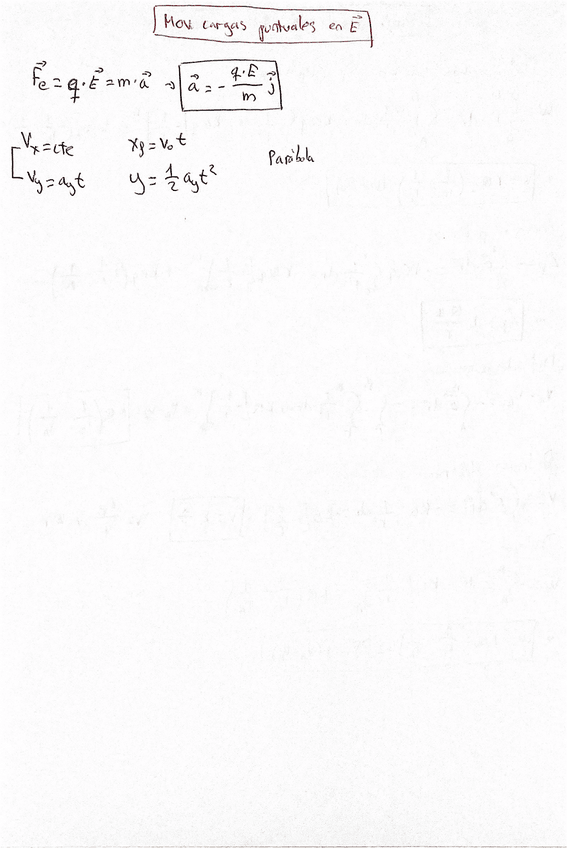 Mov. cargas puntuales en E⃗
F⃗e = q·E⃗ = m·a⃗ → a⃗ = - q·E/m j⃗
Vx = cte    xf = v₀ t
Vy = ayt    y = 1/2 ayt²    Parábola